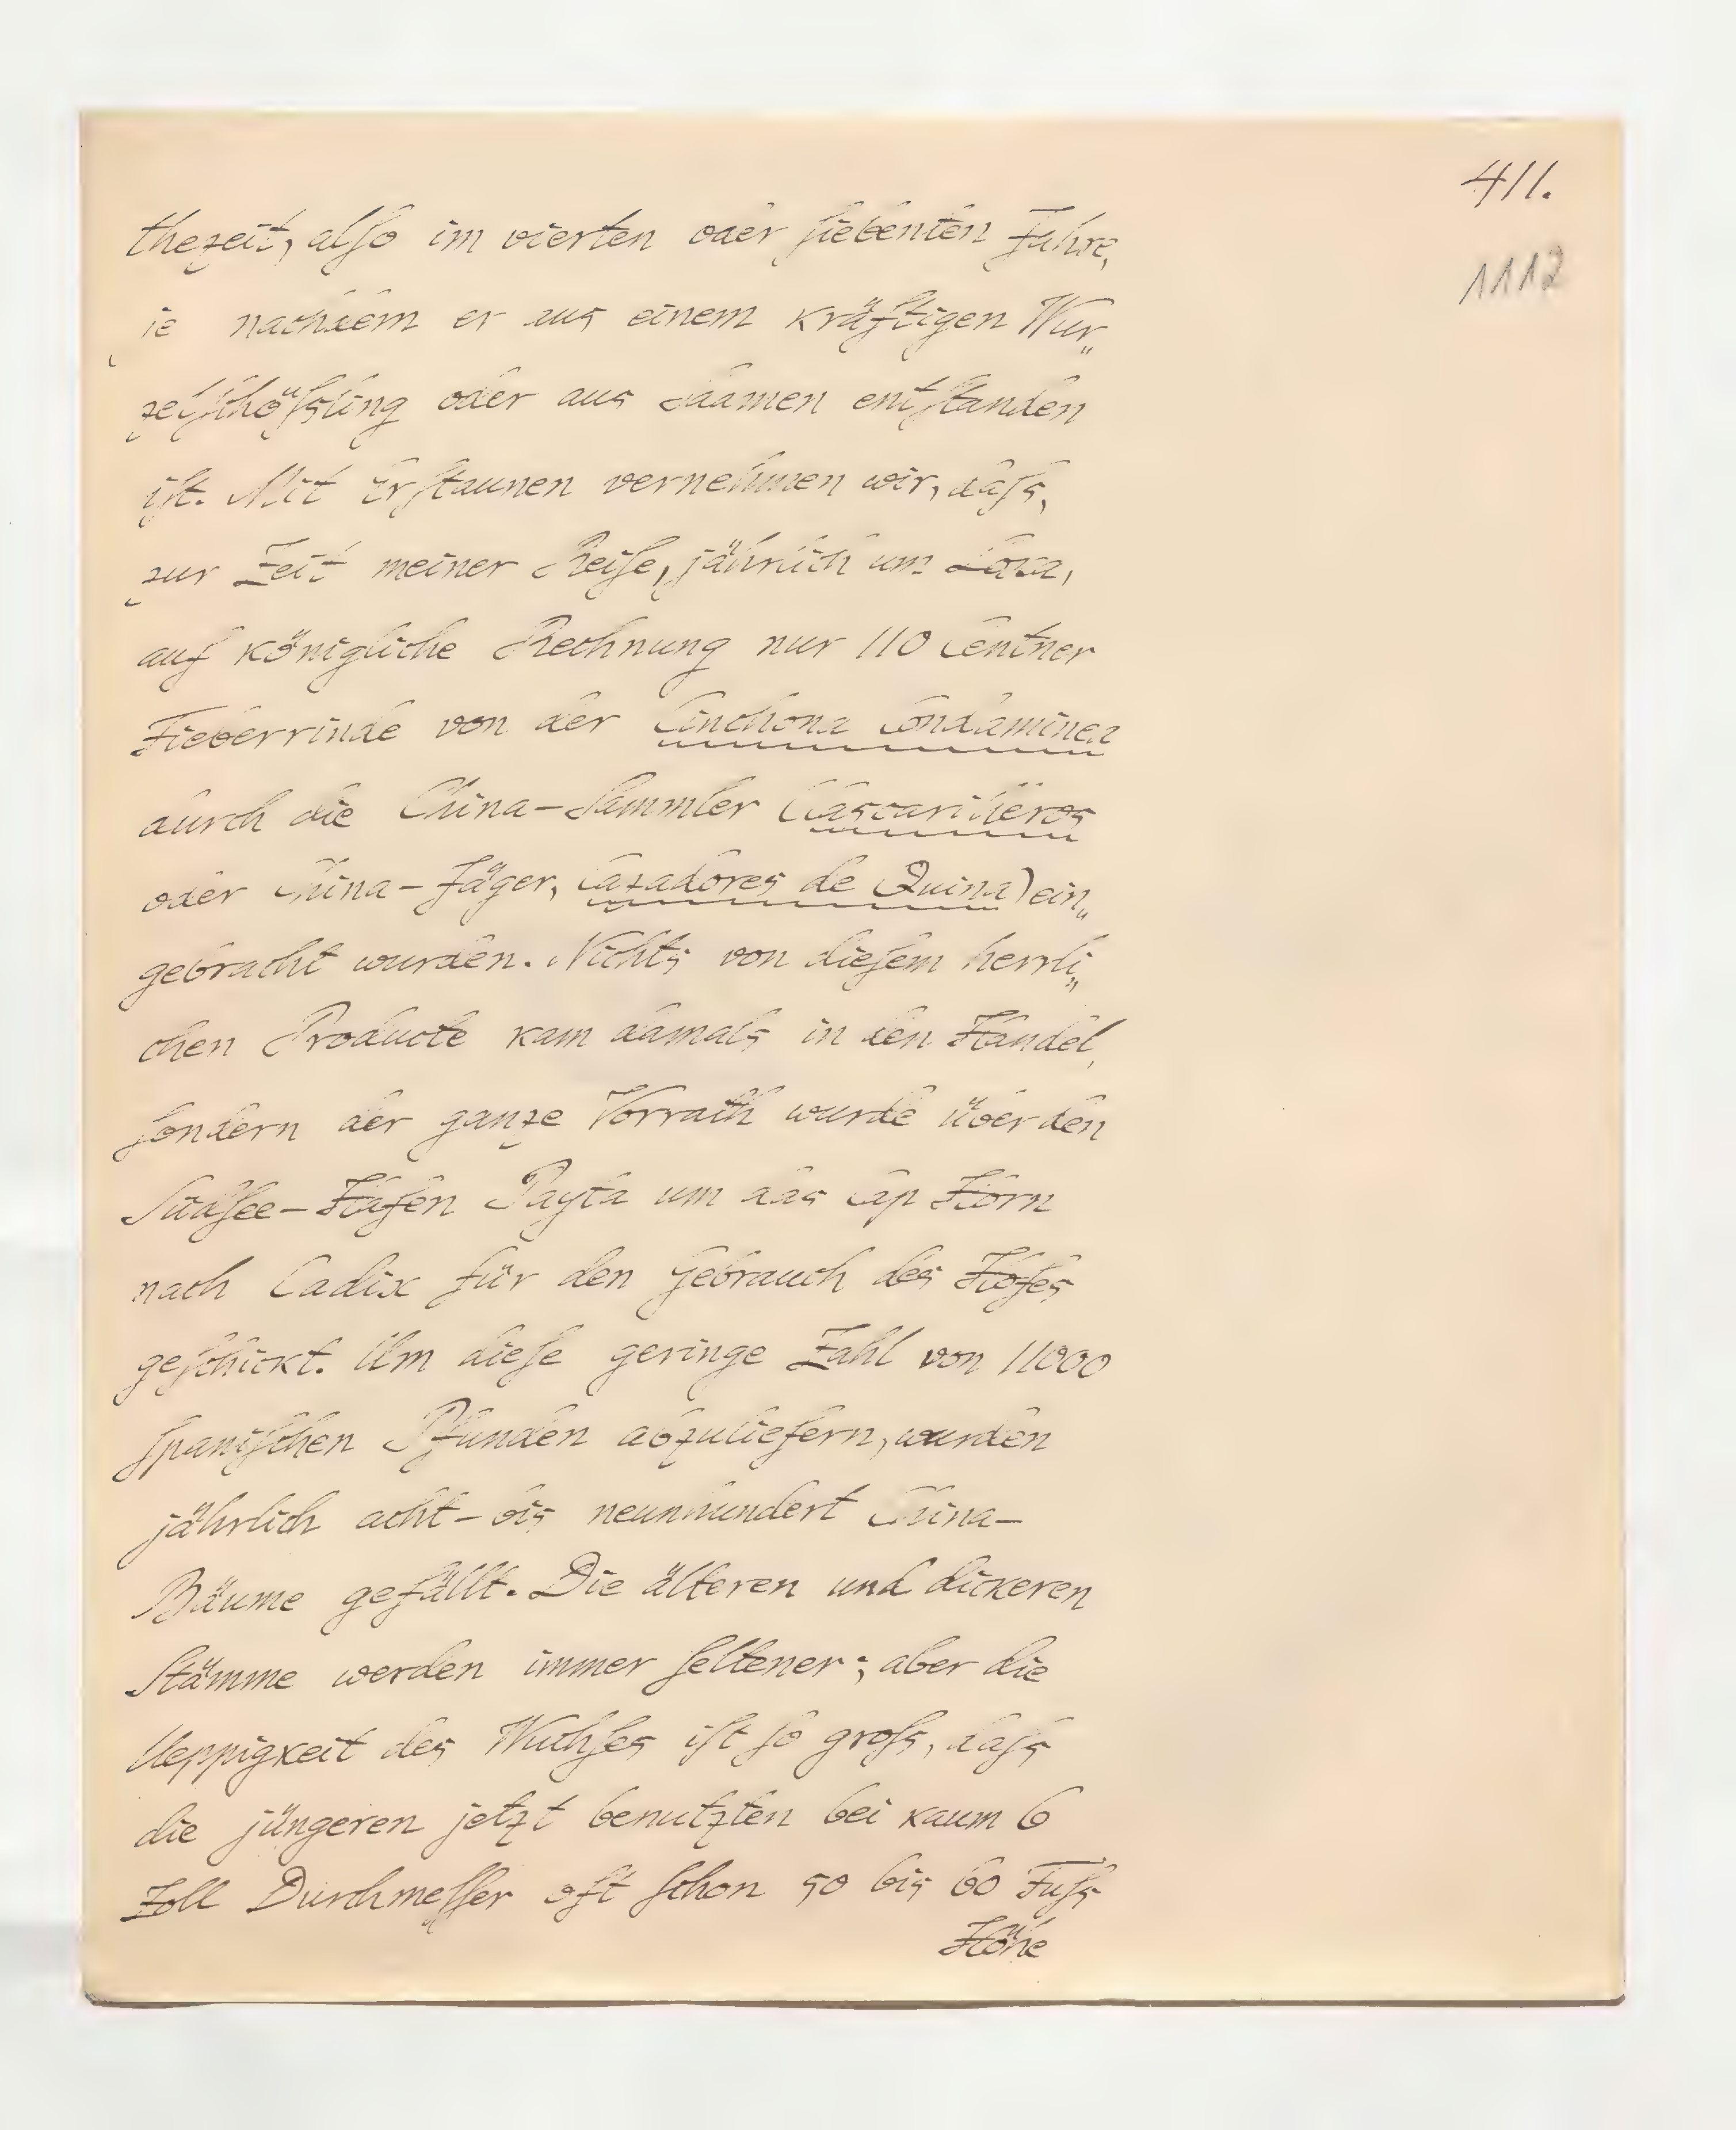 411.
1112
thezeit, alſo im vierten oder ſiebenten Jahre,
je nachdem er aus einem kräftigen Wur„
zelſchöſsling oder aus Saamen entſtanden
iſt. Mit Erſtaunen vernehmen wir, daſs,
zur Zeit meiner Reiſe, jährlich um Loxa,
auf königliche Rechnung nur 110 Centner
Fieberrinde von der Cinchona Condaminea
durch die China-Sammler (Cascarilleros
oder China-Jäger, Cazadores de Quina) ein„
gebracht wurden. Nichts von dieſem herrli„
chen Producte kam damals in den Handel,
ſondern der ganze Vorrath wurde über den
Südſee-Hafen Payta um das Cap Horn
nach Cadix für den Gebrauch des Hofes
geſchickt. Um dieſe geringe Zahl von 11000
ſpaniſchen Pfunden abzuliefern, wurden
jährlich acht- bis neunhundert China-
Bäume gefällt. Die älteren und dickeren
Stämme werden immer ſeltener; aber die
Ueppigkeit des Wuchſes iſt ſo groſs, daſs
die jüngeren jetzt benutzten bei kaum 6
Zoll Durchmeſſer oft ſchon 50 bis 60 Fuſs
Höhe